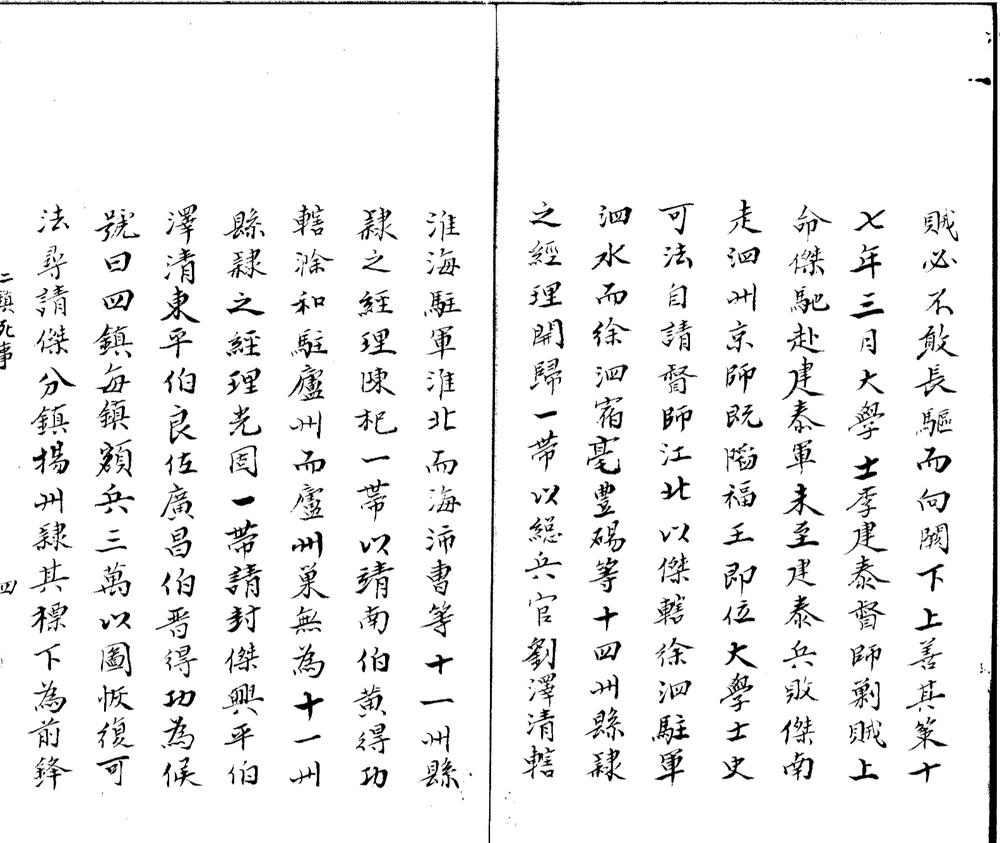 賊必不敢長驅而向闕下上善其策十
七年三月大學士李建泰督師剿賊上
命傑馳赴建泰軍未至建泰兵敗傑南
走泗州京師既陷福王即位大學士史
可法自請督師江北以傑轄徐泗駐軍
泗水而徐泗宿亳豐碭等十四州縣隸
之經理開歸一帶以總兵官劉澤清轄
淮海駐軍淮北而海沛曹等十一州縣
隸之經理陳杞一帶以靖南伯黃得功
轄滁和駐廬州而廬州巢無為十一州
縣隸之經理光固一帶請封傑興平伯
澤清東平伯良佐廣昌伯晉得功為侯
號曰四鎮每鎮額兵三萬以圖恢復可
法尋請傑分鎮揚州隸其標下為前鋒
二鎮死事
四